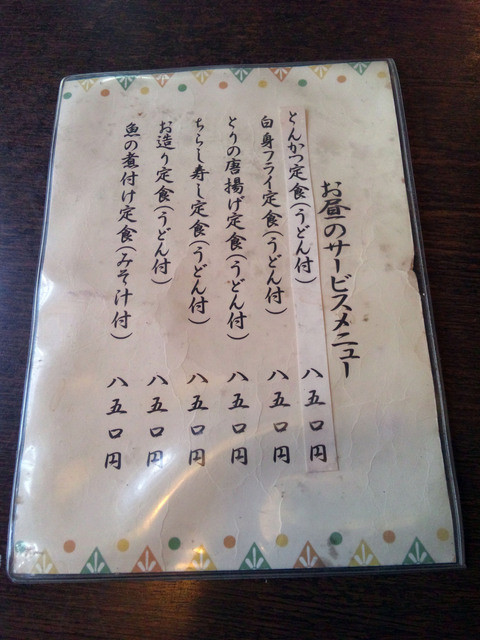 お昼のサービスメニュー
とんかつ定食(うどん付) 八五〇円
白身フライ定食(うどん付) 八五〇円
とりの唐揚げ定食(うどん付) 八五〇円
ちらし寿し定食(うどん付) 八五〇円
お造り定食(うどん付) 八五〇円
魚の煮付け定食(みそ汁付) 八五〇円